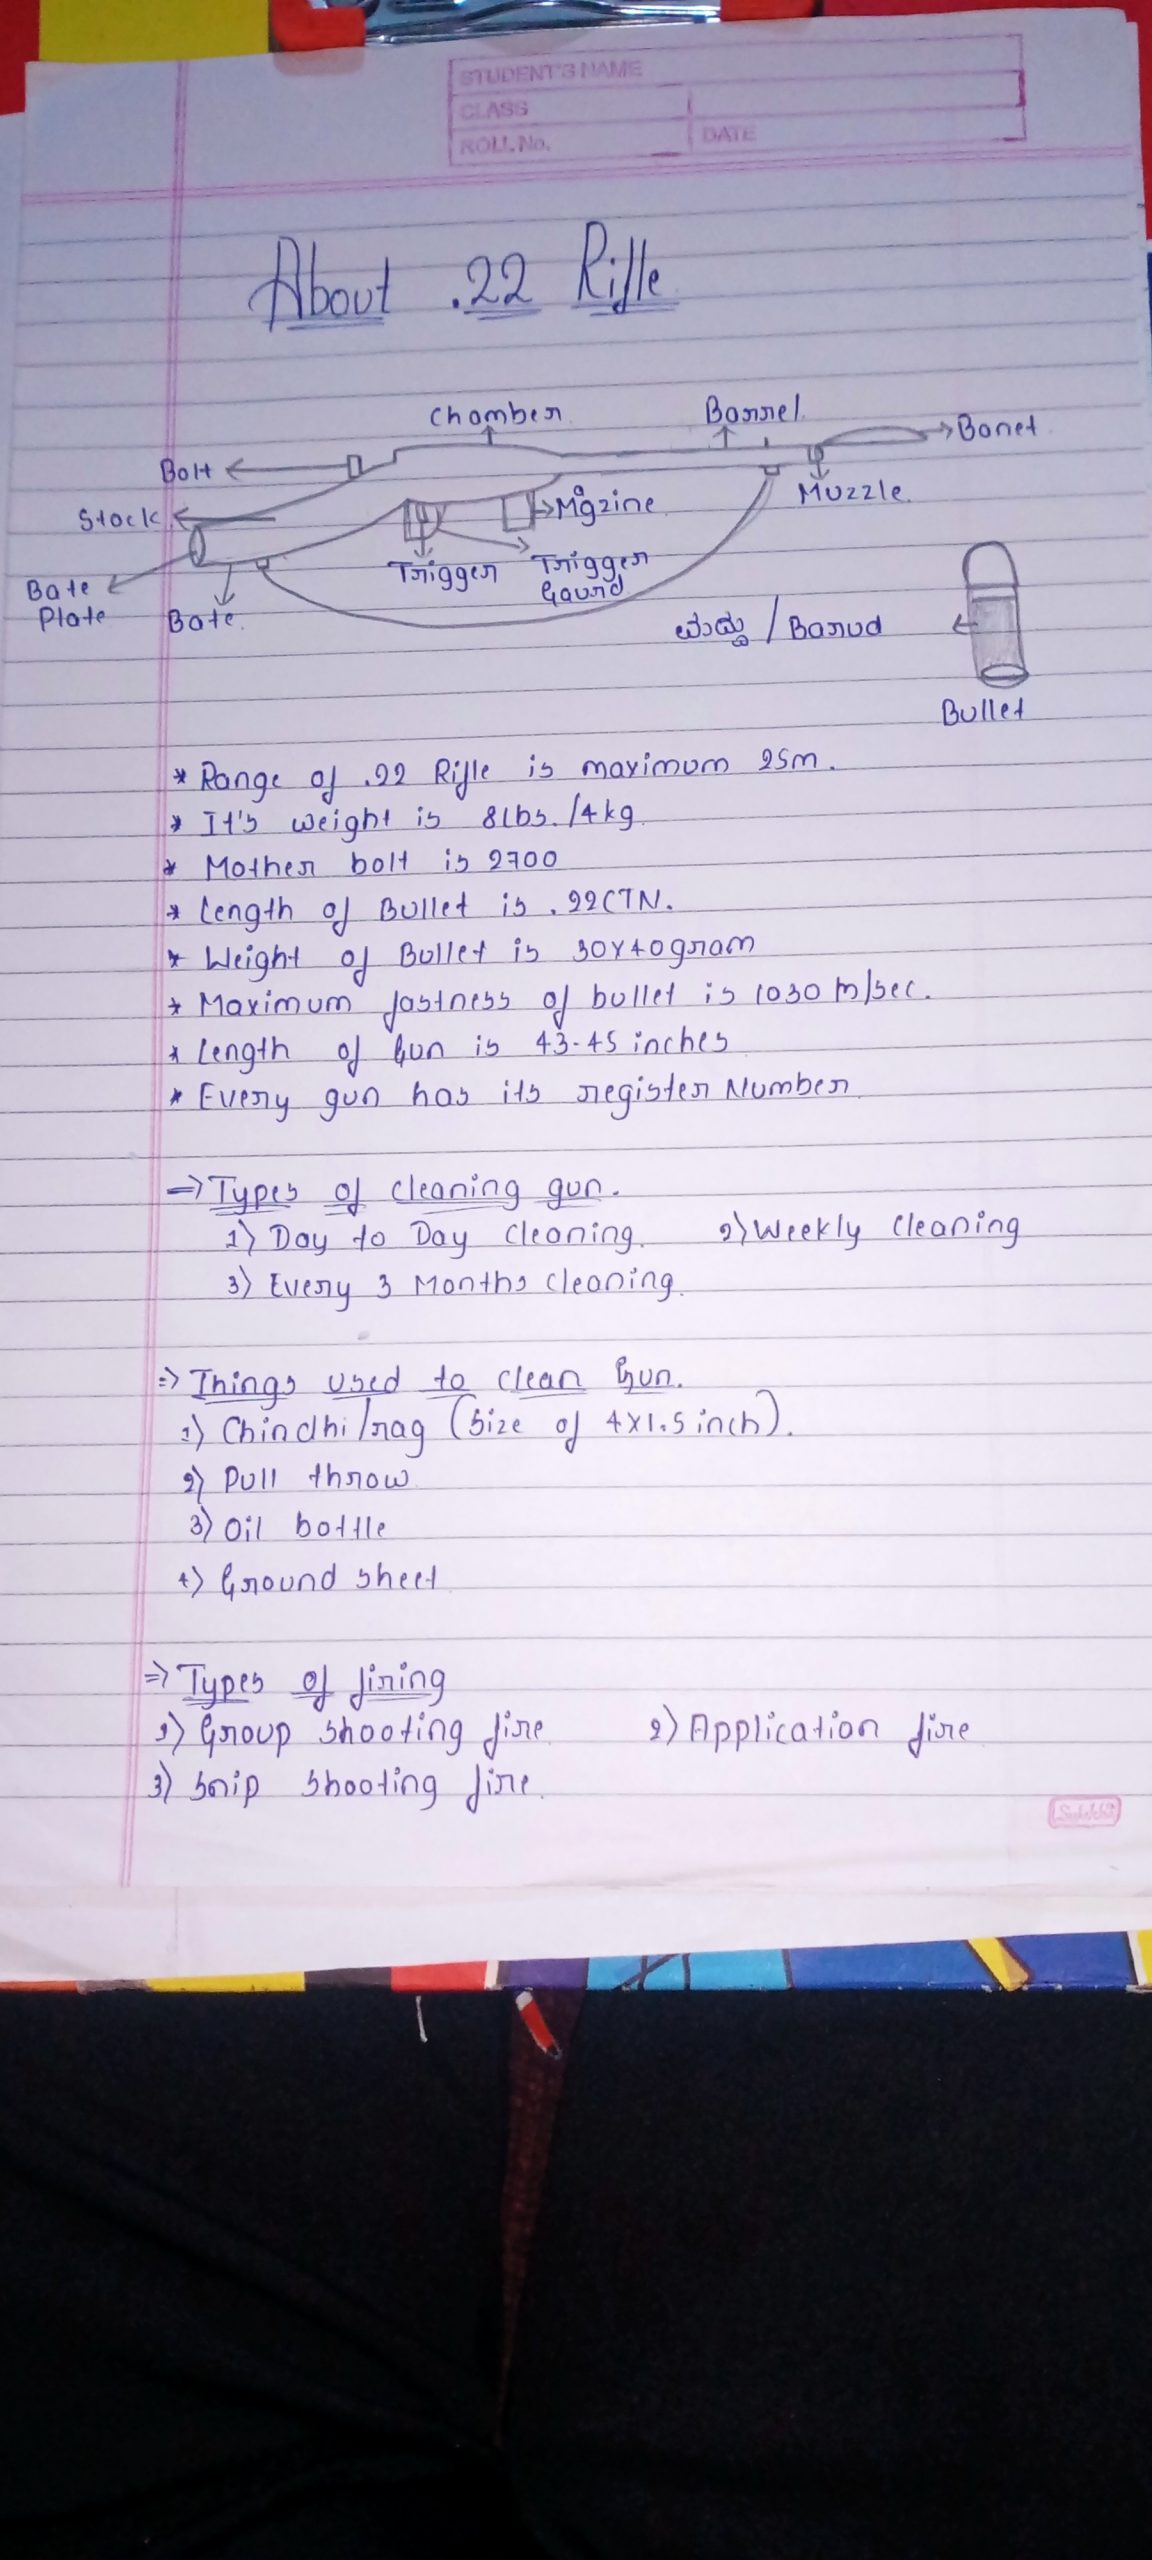 STUDENT'S NAME
CLASS
ROLL.No. DATE
About .22 Rifle
Chamber
Barrel
Bonet
Bolt
Muzzle
Magzine
Stock
Trigger
Trigger
Gaurd
Bate
Plate
Bate
ಮದ್ದು / Barud
Bullet
* Range of .22 Rifle is maximum 25m.
* It's weight is 8lbs./4kg
* Mother bolt is 2700
* Length of Bullet is .22CTN.
* Weight of Bullet is 30x40gram
* Maximum fastness of bullet is 1030 m/sec.
* Length of Gun is 43-45 inches
* Every gun has its register Number
⇒ Types of cleaning gun.
1) Day to Day cleaning. 2) Weekly cleaning
3) Every 3 Months cleaning.
⇒ Things used to clean Gun.
1) Chindhi/rag (Size of 4x1.5 inch).
2) Pull throw
3) Oil bottle
4) Ground sheet
⇒ Types of firing
1) Group shooting fire 2) Application fire
3) Snip shooting fire.